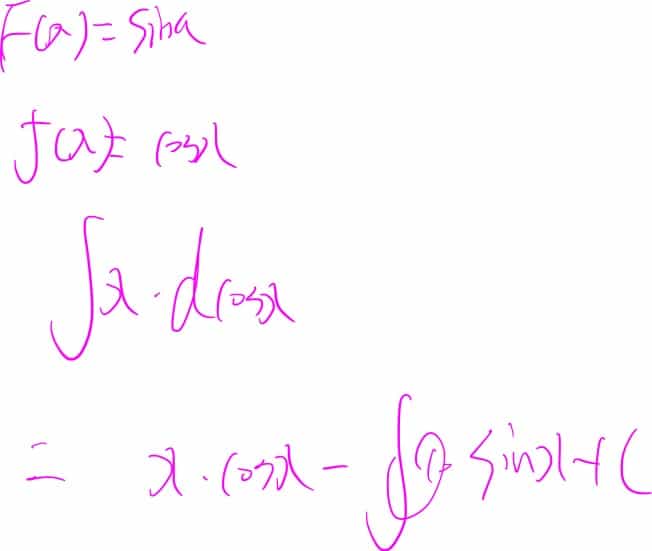 F(x)=sinx
f(x)=cosx
∫x·dcosx
= x·cosx-sinx+C